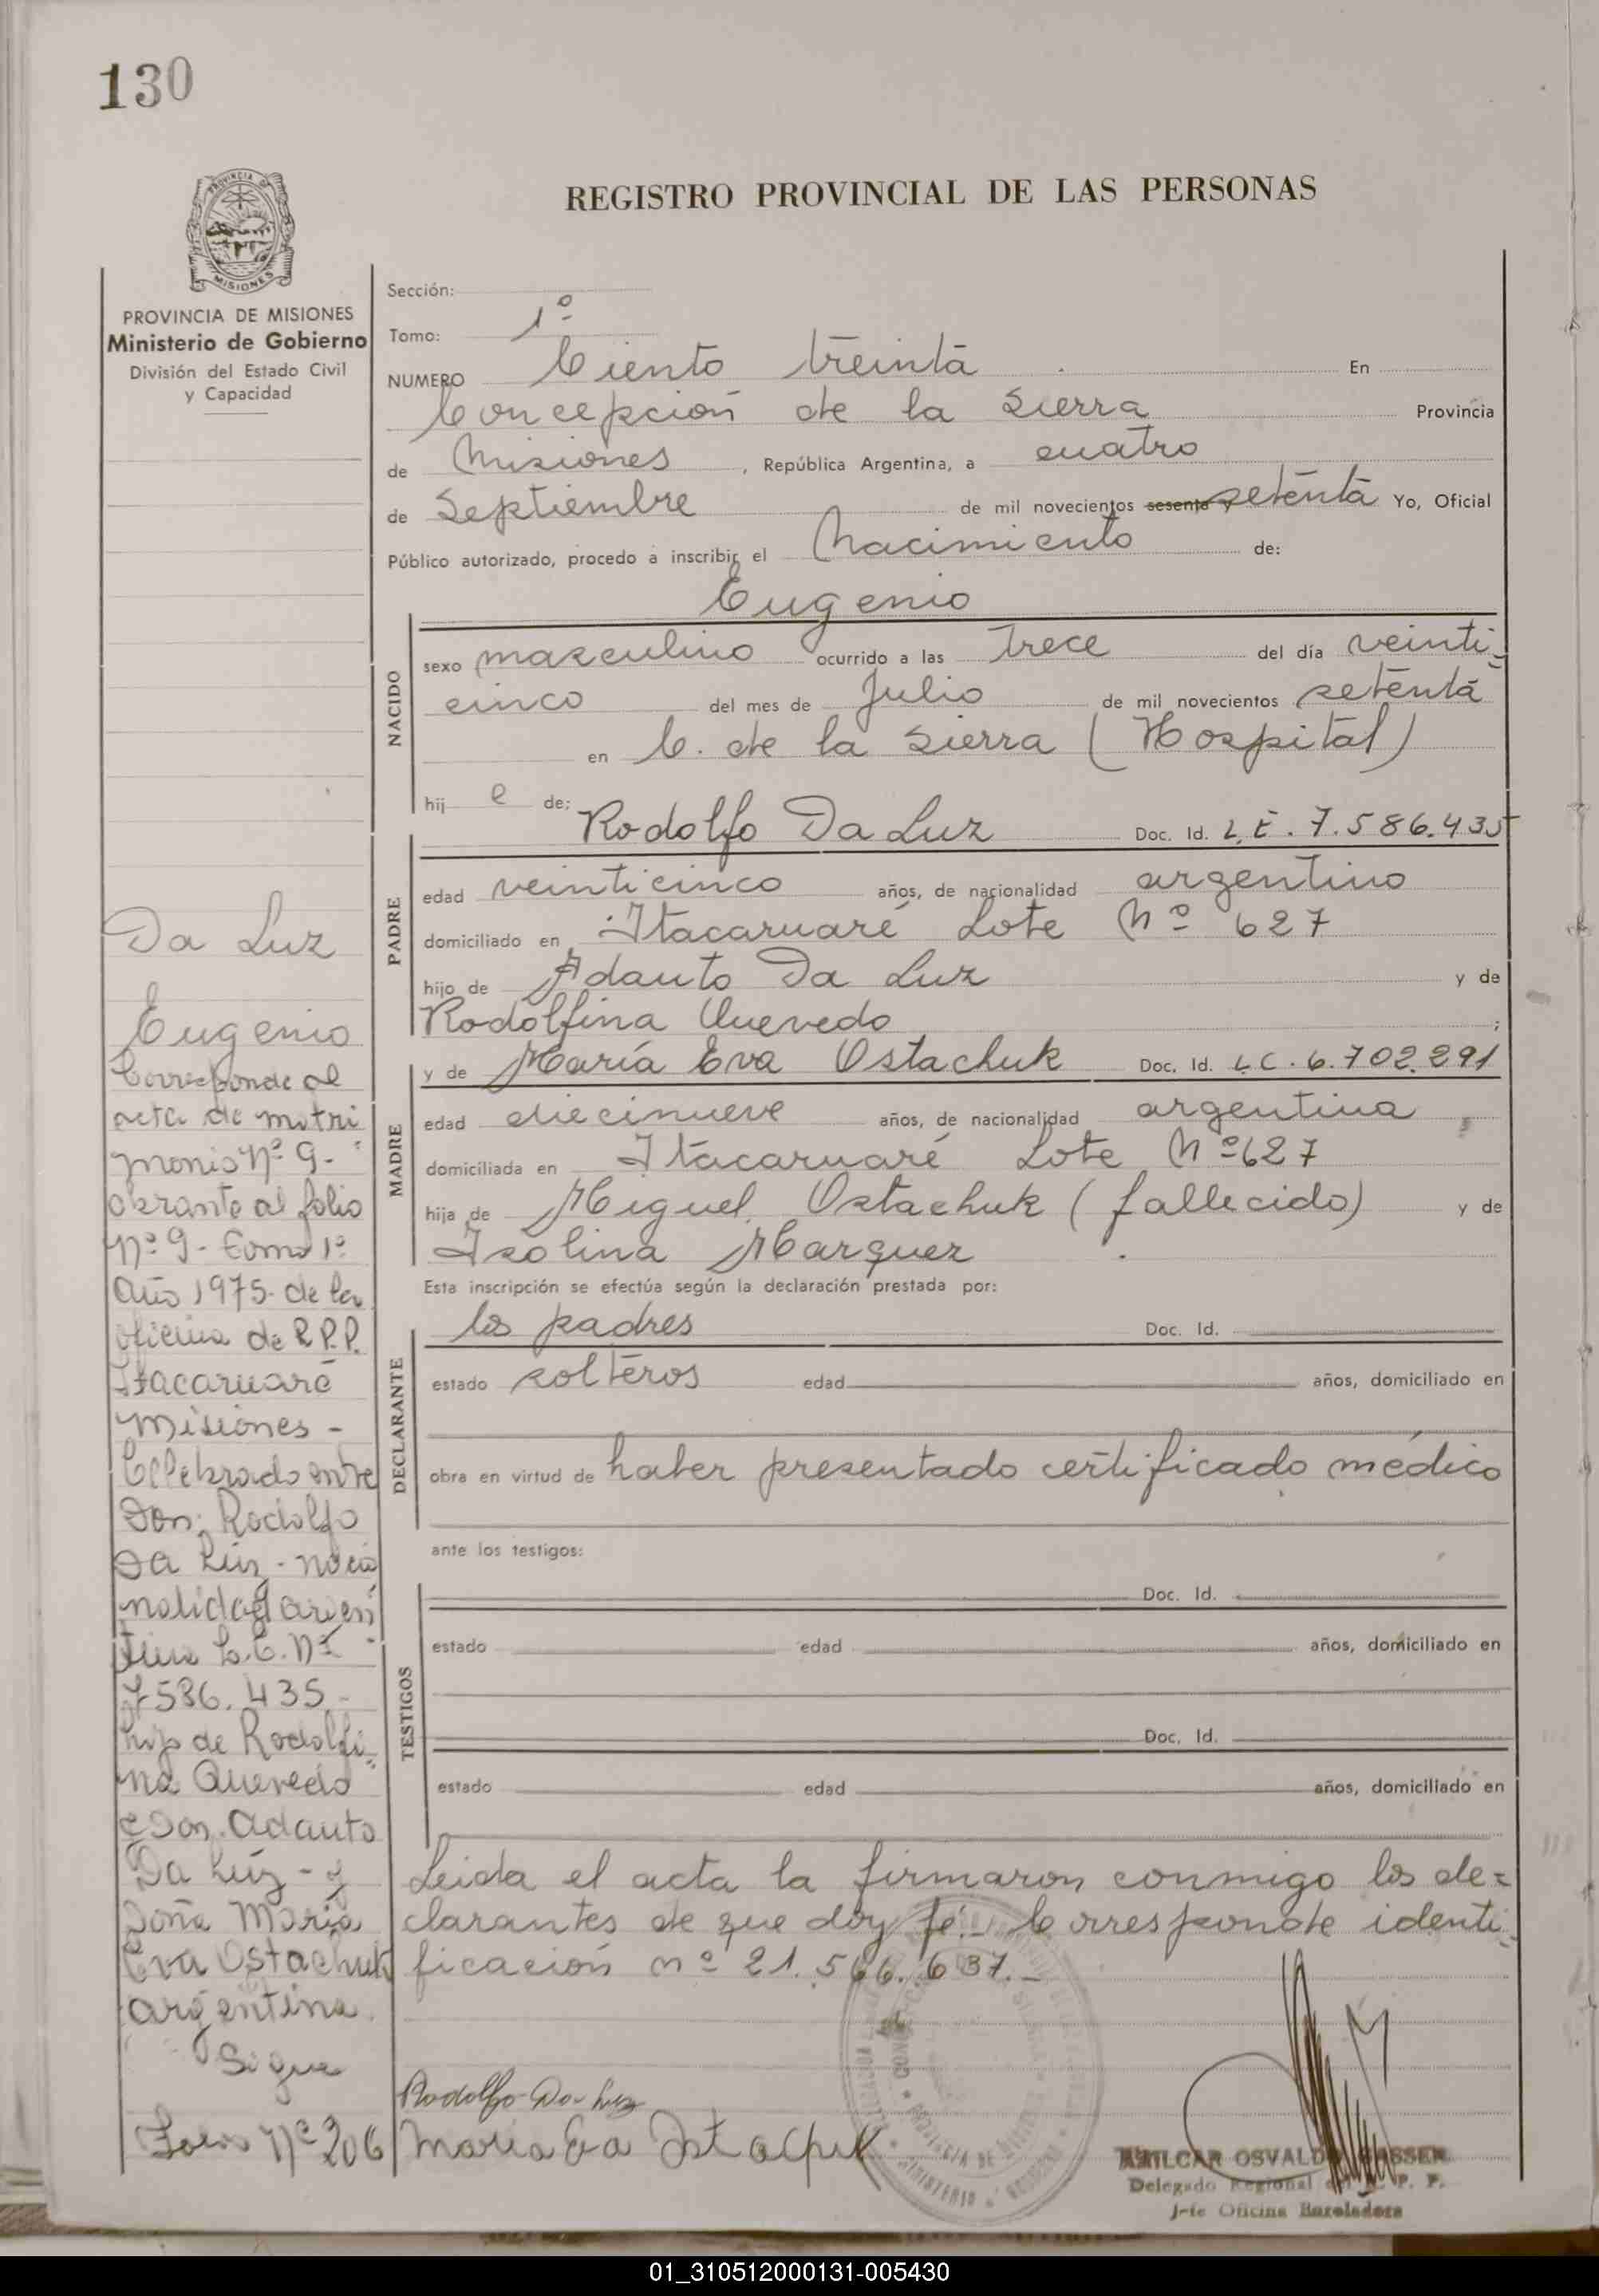 130
REGISTRO PROVINCIAL DE LAS PERSONAS
PROVINCIA DE
MISIONES
PROVINCIA DE MISIONES
Ministerio de Gobierno
División del Estado Civil
y Capacidad
Sección:
Tomo: 1º
NUMERO Ciento treinta En
Concepción de la Sierra Provincia
de Misiones, República Argentina, a cuatro
de Septiembre de mil novecientos sesenta y setenta Yo, Oficial
Público autorizado, procedo a inscribir el Nacimiento de:
Eugenio
NACIDO
sexo masculino ocurrido a las trece del día veinti-
cinco del mes de Julio de mil novecientos setenta
en C. de la Sierra (Hospital)
hij o de: Rodolfo Da Luz Doc. Id. L.E. 7.586.435
PADRE
edad veinticinco años, de nacionalidad argentino
domiciliado en Itacaruaré Lote Nº 627
hijo de Adauto Da Luz y de
Rodolfina Quevedo ;
y de María Eva Ostachuk Doc. Id. L.C. 6.702.291
MADRE
edad diecinueve años, de nacionalidad argentina
domiciliada en Itacaruaré Lote Nº 627
hija de Miguel Ostachuk (fallecido) y de
Isolina Marquez
Esta inscripción se efectúa según la declaración prestada por:
los padres Doc. Id.
DECLARANTE
estado solteros edad años, domiciliado en
obra en virtud de haber presentado certificado médico
ante los testigos:
Doc. Id.
TESTIGOS
estado edad años, domiciliado en
Doc. Id.
estado edad años, domiciliado en
Leida el acta la firmaron conmigo los de=
clarantes de que doy fé.- Corresponde identi-
ficación nº 21.566.637.-
Rodolfo Da Luz
Maria Eva Ostachuk
AMILCAR OSVALDO GASSER
Delegado Regional del R. P. P.
Jefe Oficina Enroladora
Da Luz
Eugenio
Corresponde al
acta de matri
monio Nº 9-
obrante al folio
Nº 9- Tomo 1º
Año 1975- de la
oficina de R.P.P.
Itacaruaré
Misiones -
Celebrado entre
Don: Rodolfo
Da Luz - nacio
nalidad argen
tina L.E. Nº
7586.435-
hijo de Rodolfi-
na Quevedo
e Don. Adauto
Da Luz - y
Doña María
Eva Ostachuk
argentina.
Sigue
Folio Nº 206
01_310512000131-005430